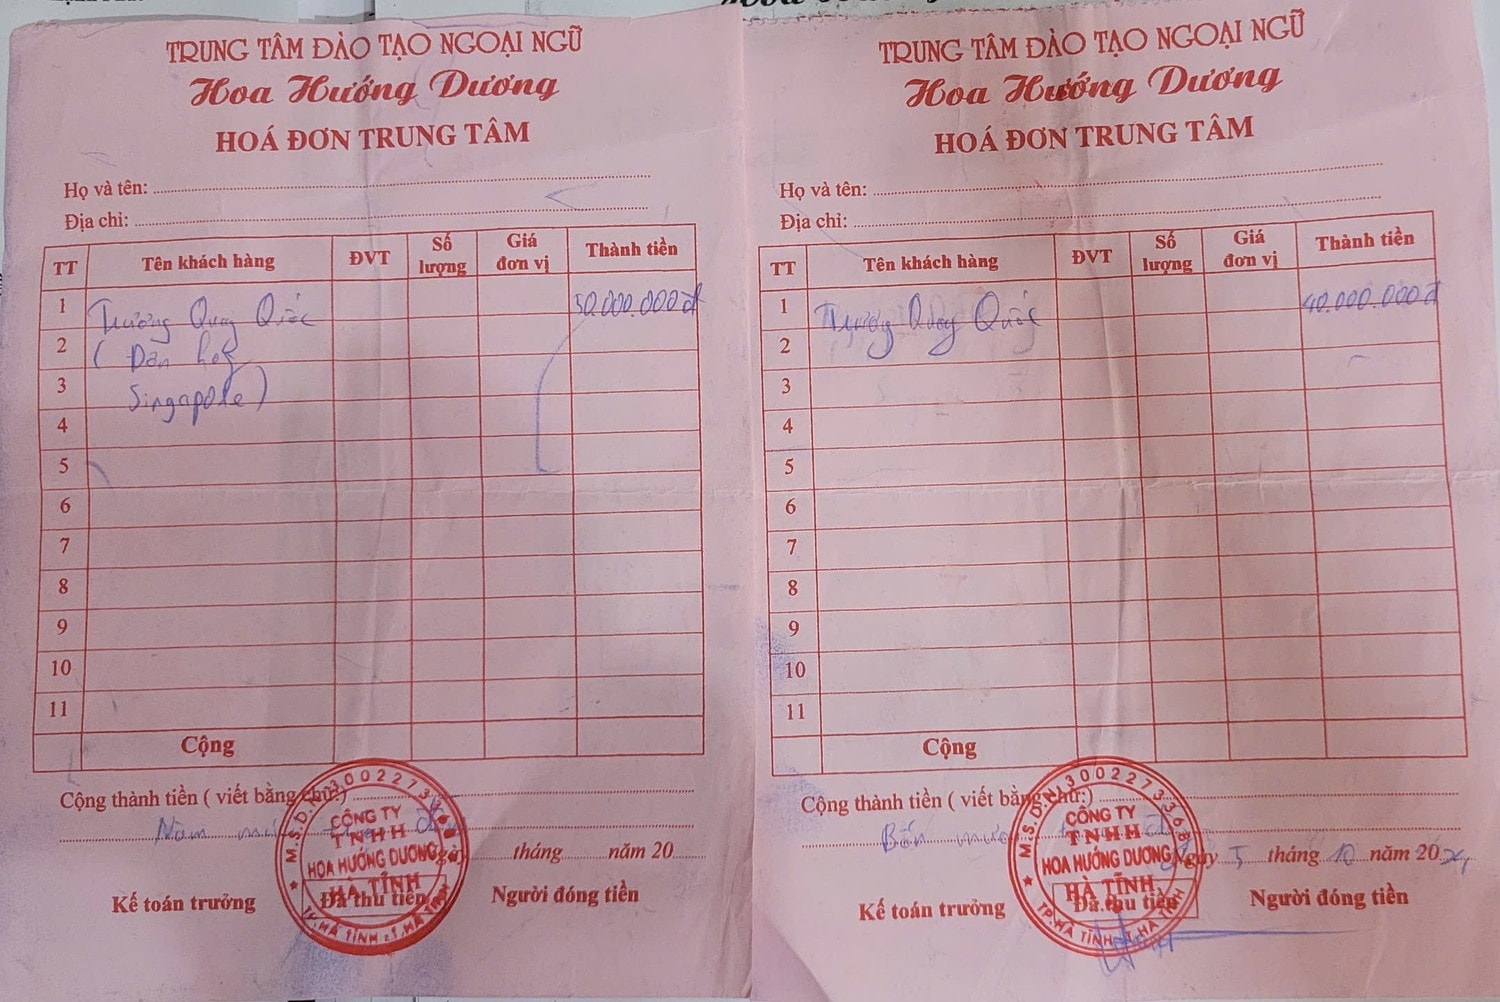 TRUNG TÂM ĐÀO TẠO NGOẠI NGỮ
Hoa Hướng Dương
HOÁ ĐƠN TRUNG TÂM
Họ và tên:
Địa chỉ:
TT Tên khách hàng ĐVT Số lượng Giá đơn vị Thành tiền
1 Trương Quang Quốc 50.000.000đ
2 (Đơn
3 Singapore)
4
5
6
7
8
9
10
11
Cộng
Cộng thành tiền ( viết bằng chữ:)
Năm
tháng năm 20
Kế toán trưởng Đã thu tiền Người đóng tiền
M.S.D.N:3002273368
CÔNG TY
TNHH
HOA HƯỚNG DƯƠNG
HÀ TĨNH
TP.HÀ TĨNH - T.HÀ TĨNH
TRUNG TÂM ĐÀO TẠO NGOẠI NGỮ
Hoa Hướng Dương
HOÁ ĐƠN TRUNG TÂM
Họ và tên:
Địa chỉ:
TT Tên khách hàng ĐVT Số lượng Giá đơn vị Thành tiền
1 Trương Quang Quốc 40.000.000đ
2
3
4
5
6
7
8
9
10
11
Cộng
Cộng thành tiền ( viết bằng chữ:)
Bốn mươi
Ngày 5 tháng 10 năm 2024
Kế toán trưởng Đã thu tiền Người đóng tiền
M.S.D.N:3002273368
CÔNG TY
TNHH
HOA HƯỚNG DƯƠNG
HÀ TĨNH
TP.HÀ TĨNH - T.HÀ TĨNH